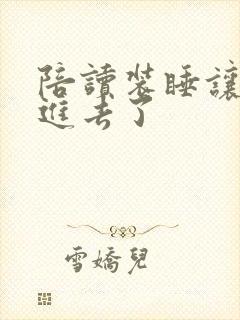 陪讀裝睡讓
進去了
雪嬌兒